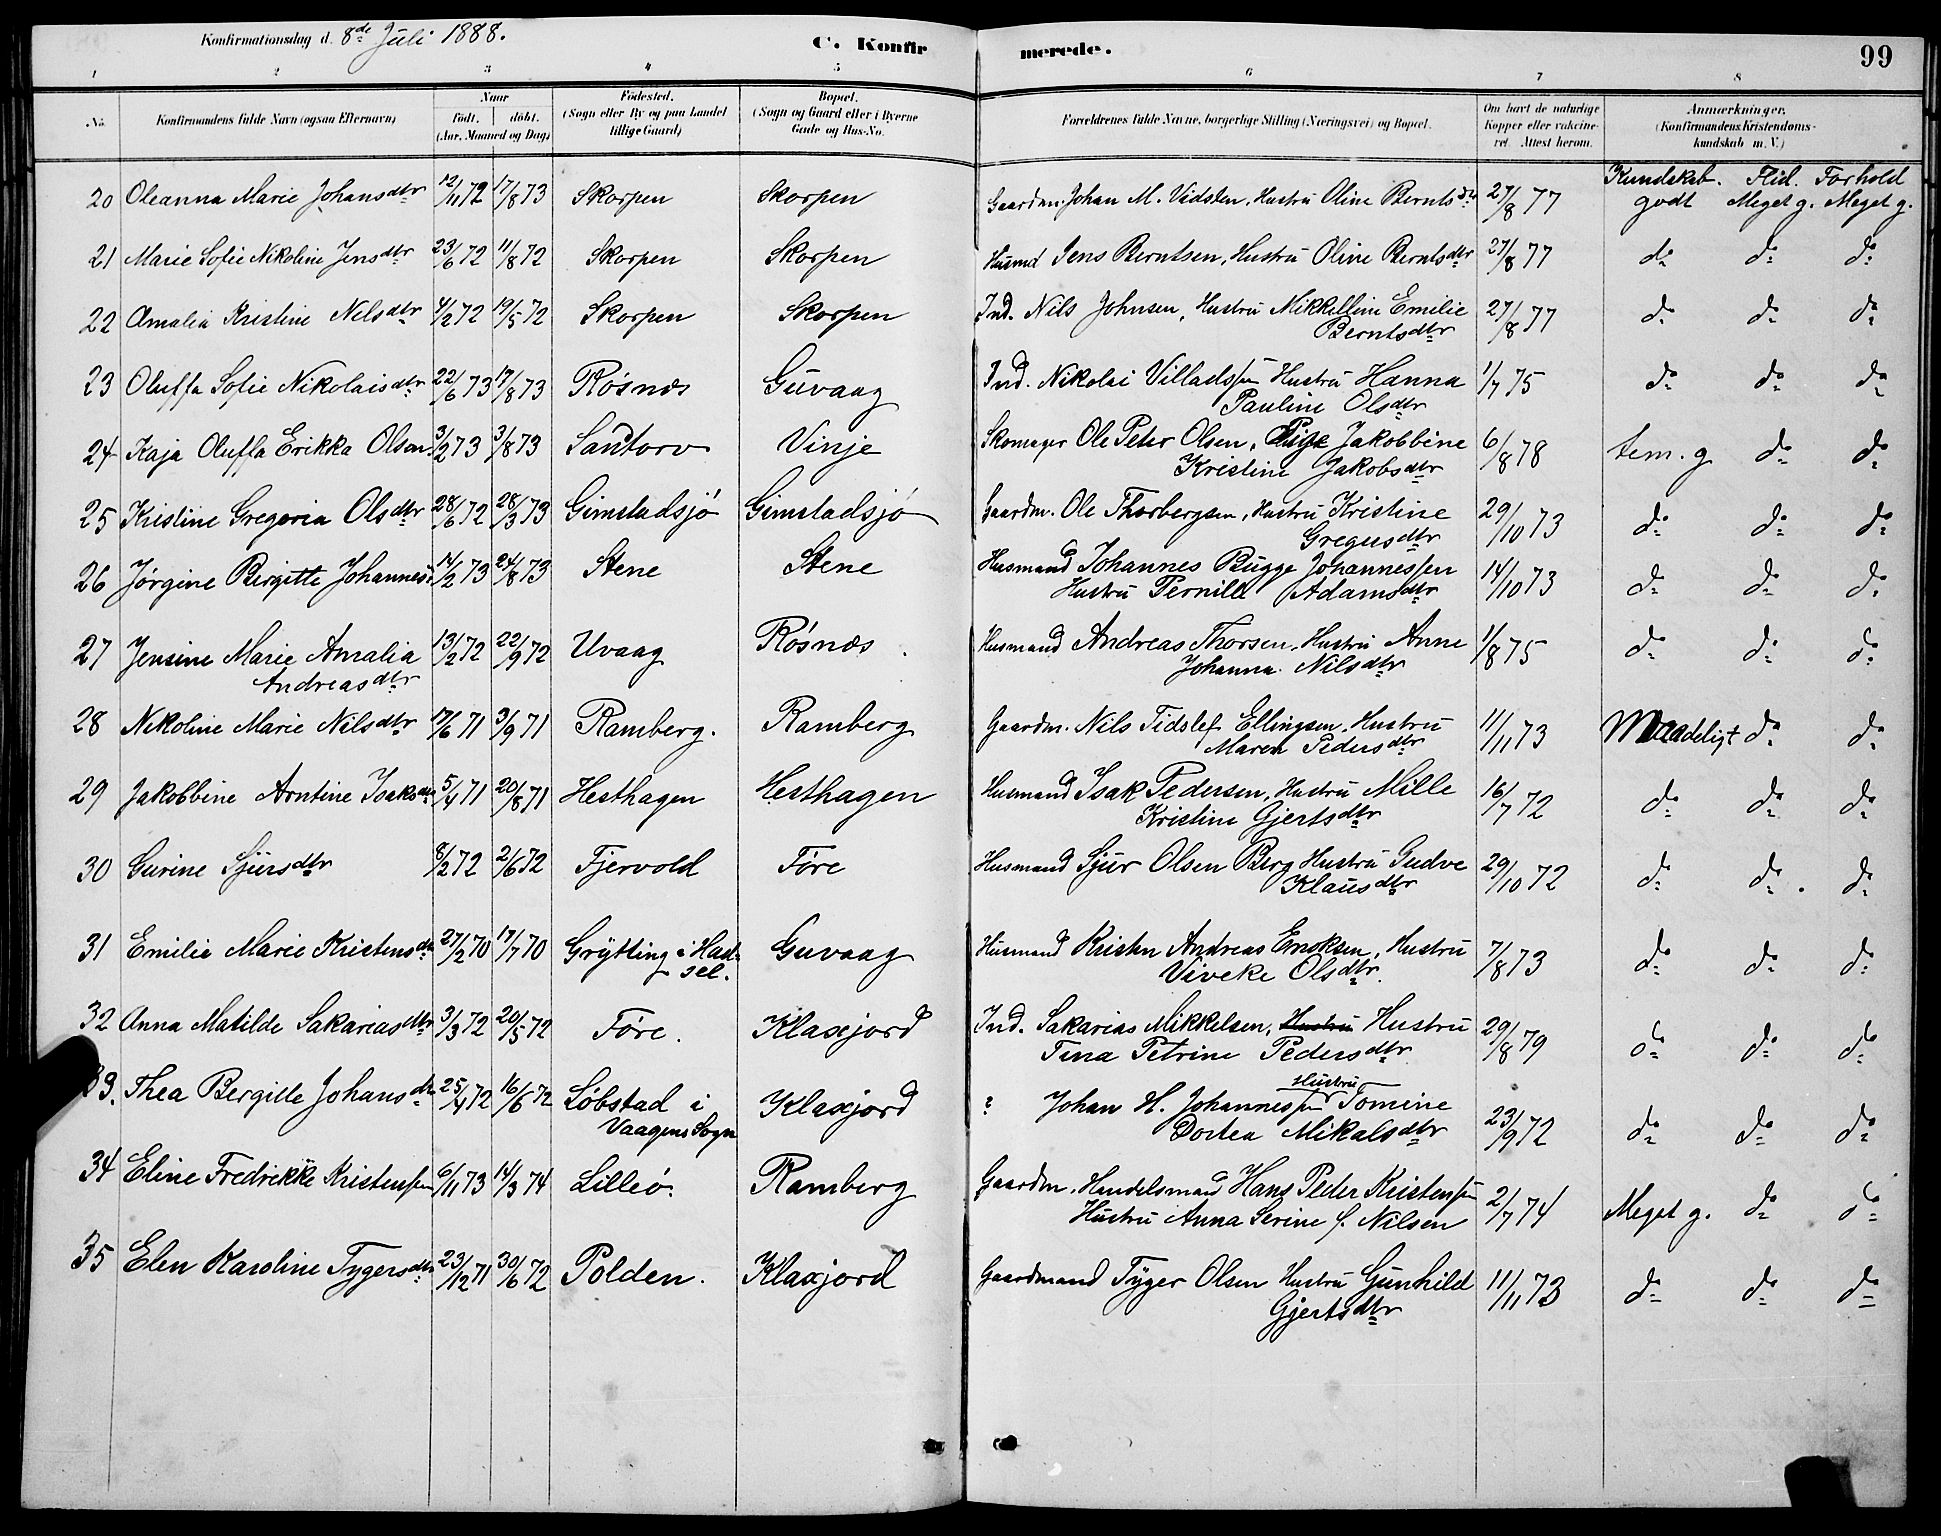 Konfirmationsdag d. 8de Juli 1888. C. Konfirmerede. 99
1 2 3 4 5 6 7 8
No. Konfirmandens fulde Navn (ogsaa Efternavn) Naar födt. döbt. (Aar, Maaned og Dag) Födested. (Sogn eller By og paa Landet tillige Gaard) Bopæl. (Sogn og Gaard eller i Byerne Gade og Hus-No. Forældrenes fulde Navne, borgerlige Stilling (Næringsvei) og Bopæl. Om havt de naturlige Kopper eller vakcineret. Attest herom. Anmærkninger, (Konfirmandens Kristendomskundskab m. V.)
Kundskab. Flid. Forhold
20 Oleanna Marie Johansdtr 12/11 72 17/8 73 Skorpen Skorpen Gaardm. Johan M. Vidsten, Hustru Oline Berntsdtr 27/8 77 godt Meget g. Meget g.
21 Marie Sofie Nikoline Jensdtr 23/6 72 11/8 72 Skorpen Skorpen Husmd Jens Berntsen, Hustru Oline Berntsdtr 27/8 77 do do do
22 Amalia Kristine Nilsdtr 4/2 72 19/5 72 Skorpen Skorpen Ind. Nils Johnsen, Hustru Mikkelline Emilie 27/8 77 do do do
Berntsdtr
23 Oluffa Sofie Nikolaisdtr 22/6 73 17/8 73 Røsnæs Guvaag Ind. Nikolai Villadssen Hustru Hanna 1/7 75 do do do
Pauline Olsdtr
24 Kaja Oluffa Erikka Olsen 3/2 73 3/8 73 Sandtorv Vinje Skomager Ole Peter Olsen, Pige Jakobbine 6/8 78 tem. g do do
Kristine Jakobsdtr
25 Kristine Gregoria Olsdtr 28/6 72 28/3 73 Gimstadsjø Gimstadsjø Gaardm. Ole Thorbergsen, Hustru Kristine 29/10 73 do do do
Gregusdtr
26 Jørgine Birgitte Johannesd. 14/2 73 24/8 73 Stene Stene Husmand Johannes Bugge Johannessen 14/10 73 do do do
Hustru Pernille Adamsdtr
27 Jensine Marie Amalia 13/2 72 22/9 72 Uvaag Røsnæs. Husmand Andreas Thorsen, Hustru Anne 1/8 75 do do do
Andreasdtr Johanna Nilsdtr
28 Nikoline Marie Nilsdtr 17/6 71 3/9 71 Ramberg. Ramberg Gaardm. Nils Tidslef Ellingsen, Hustru 11/11 73 Maadeligt do do
Maren Pedersdtr
29 Jakobbine Arntine Isaksdtr 5/4 71 20/8 71 Hesthagen Hesthagen Husmand Isak Pedersen, Hustru Mille 16/7 72 do do do
Kristine Gjertsdtr
30 Gurine Sjursdtr 8/2 72 2/6 72 Fjervold Føre Husmand Sjur Olsen Berg Hustru Gudve 29/10 72 do do. do
Klausdtr
31 Emilie Marie Kristensdtr 27/2 70 17/7 70 Grytting i Had- Guvaag Husmand Kristen Andreas Enoksen, Hustru 7/8 73 do do do
sel. Viveke Olsdtr.
32 Anna Matilde Sakariasdtr 3/3 72 20/5 72 Føre. Klaxjord Ind. Sakarias Mikkelsen, Hustru Hustru 29/8 79 do do do
Tina Petrine Pedersdtr
33. Thea Bergitte Johansdtr 25/4 72 16/6 72 Løbstad i Klaxjord ? Johan H. Johannessen Hustru Tomine 23/9 72 do do do
Vaagens Sogn Dortea Mikalsdtr
34 Eline Fredrikke Kristensen 6/11 73 14/3 74 Lilleø. Ramberg Gaardm. Handelsmand Hans Peder Kristensen 2/7 74 Meget g. do do
Hustru Anna Serine f. Nilsen
35 Elen Karoline Tygersdtr 23/12 71 30/6 72 Polden. Klaxjord Gaardmand Tyger Olsen Hustru Gunhild 11/11 73 do do do
Gjertsdtr